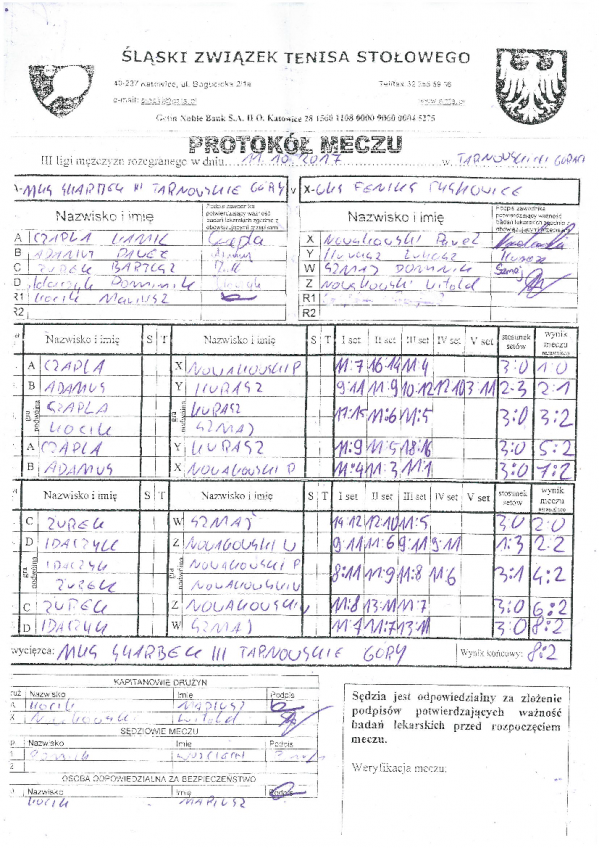 ŚLĄSKI ZWIĄZEK TENISA STOŁOWEGO
40-237 Katowice, ul. Bogucicka 2/1a
e-mail:
Getin Noble Bank S.A. II O. Katowice 28 1560 1108 0000 9060 0004 5275
PROTOKÓŁ MECZU
III ligi mężczyzn rozegranego w dniu 11.10.2017 w TARNOWSKICH GÓRACH
A- MKS SKARBEK III TARNOWSKIE GÓRY v X- FENIKS
Nazwisko i imię Podpis zawodnika potwierdzający ważność badań lekarskich zgodnie z obowiązującymi przepisami Nazwisko i imię Podpis zawodnika potwierdzający ważność badań lekarskich zgodnie z obowiązującymi przepisami
A CZAPLA KAMIL X NOWAKOWSKI PAWEŁ
B ADAMUS PAWEŁ Y KURASZ ŁUKASZ
C ŻUREK BARTOSZ W SZMAJ DOMINIK
D IDARCZYK DOMINIK Z NOWAKOWSKI WITOLD
R1 KOCIK MARIUSZ R1
R2 R2
Nazwisko i imię S T Nazwisko i imię S T I set II set III set IV set V set stosunek setów wynik meczu
A CZAPLA X NOWAKOWSKI P 11:7 16:14 11:4 3:0 1:0
B ADAMUS Y KURASZ 9:11 11:9 10:12 12:10 3:11 2:3 2:1
gra podwójna CZAPLA KURASZ 17:15 11:6 11:5 3:0 3:2
KOCIK SZMAJ
A CZAPLA Y KURASZ 11:9 11:5 18:16 3:0 5:2
B ADAMUS X NOWAKOWSKI P 11:4 11:3 11:1 3:0 7:2
Nazwisko i imię S T Nazwisko i imię S T I set II set III set IV set V set stosunek setów wynik meczu
C ŻUREK W SZMAJ 14:12 12:10 11:5 3:0 2:0
D IDARCZYK Z NOWAKOWSKI W 9:11 11:6 9:11 9:11 1:3 2:2
gra podwójna IDARCZYK gra podwójna NOWAKOWSKI P 8:11 11:9 11:8 11:6 3:1 4:2
ŻUREK NOWAKOWSKI W
C ŻUREK Z NOWAKOWSKI W 11:8 13:11 11:7 3:0 6:2
D IDARCZYK W SZMAJ 11:7 11:7 13:11 3:0 8:2
zwycięzca: MKS SKARBEK III TARNOWSKIE GÓRY Wynik końcowy: 8:2
KAPITANOWIE DRUŻYN
Nazwisko Imię Podpis
A KOCIK MARIUSZ
X NOWAKOWSKI WITOLD
SĘDZIOWIE MECZU
Nazwisko Imię Podpis
1
2
OSOBA ODPOWIEDZIALNA ZA BEZPIECZEŃSTWO
Nazwisko Imię Podpis
KOCIK MARIUSZ
Sędzia jest odpowiedzialny za złożenie
podpisów potwierdzających ważność
badań lekarskich przed rozpoczęciem
meczu.
Weryfikacja meczu: